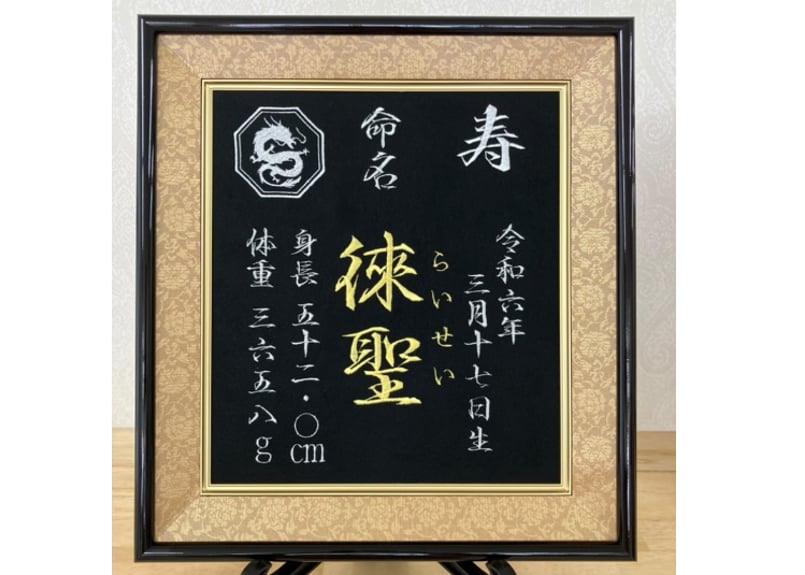 寿
令和六年
三月十七日生
命名
らいせい
徠聖
身長 五十二・〇cm
体重 三六五八g